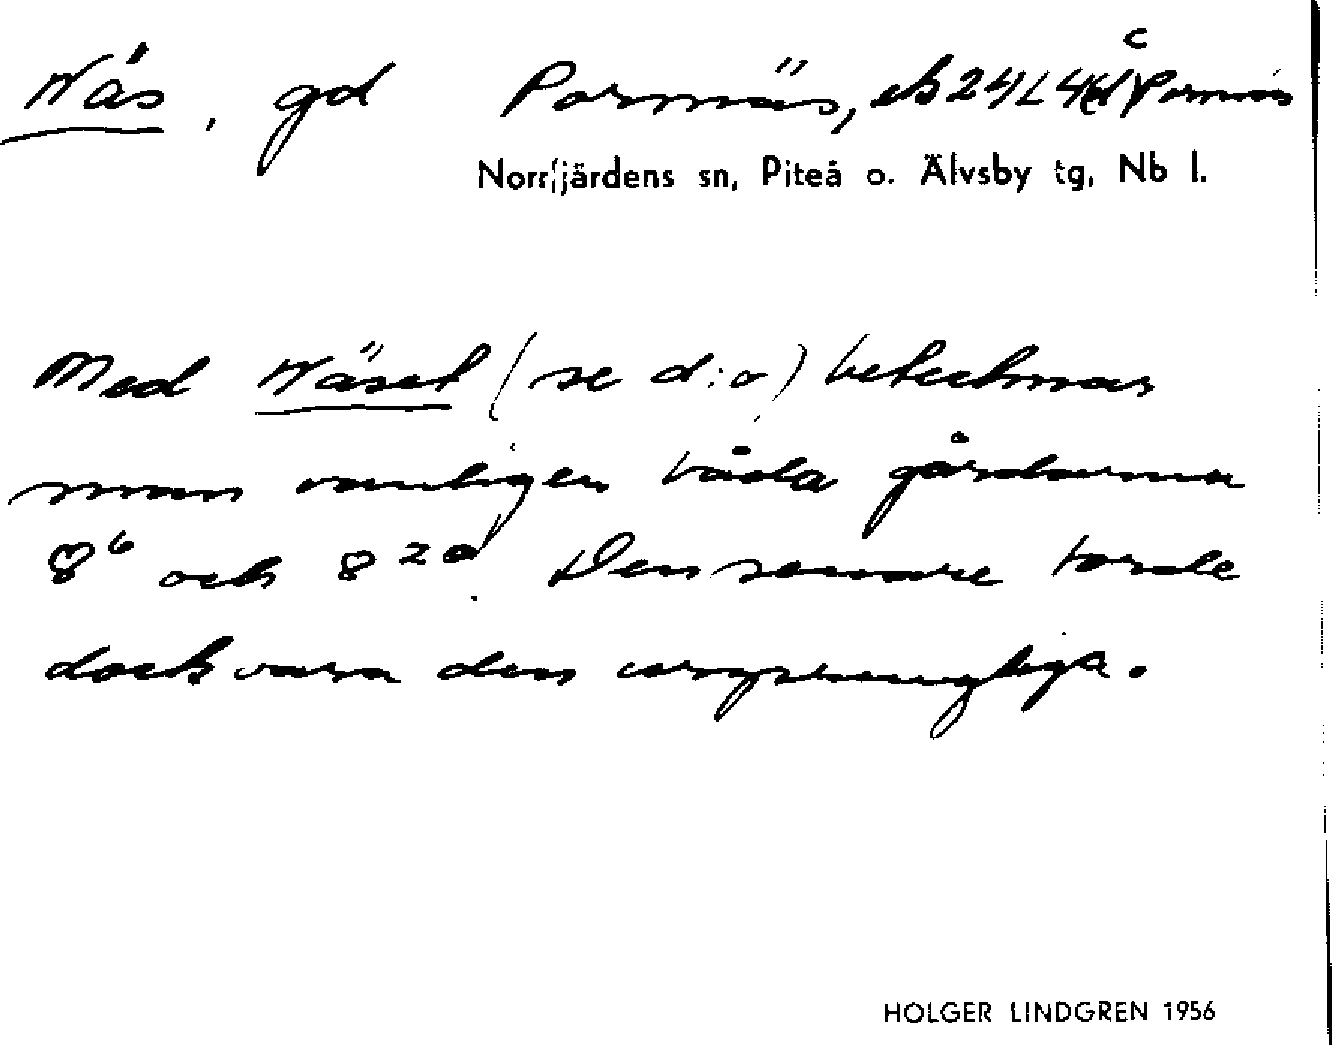 Näs, gd Porsnäs, eb 24L4d Porsnäs
Norrfjärdens sn, Piteå o. Älvsby tg, Nb l.
Med Näset (se d:o) betecknar
man vanligen båda gårdarna
8⁶ och 8²⁰. Den senare torde
dock vara den ursprungliga.
HOLGER LINDGREN 1956